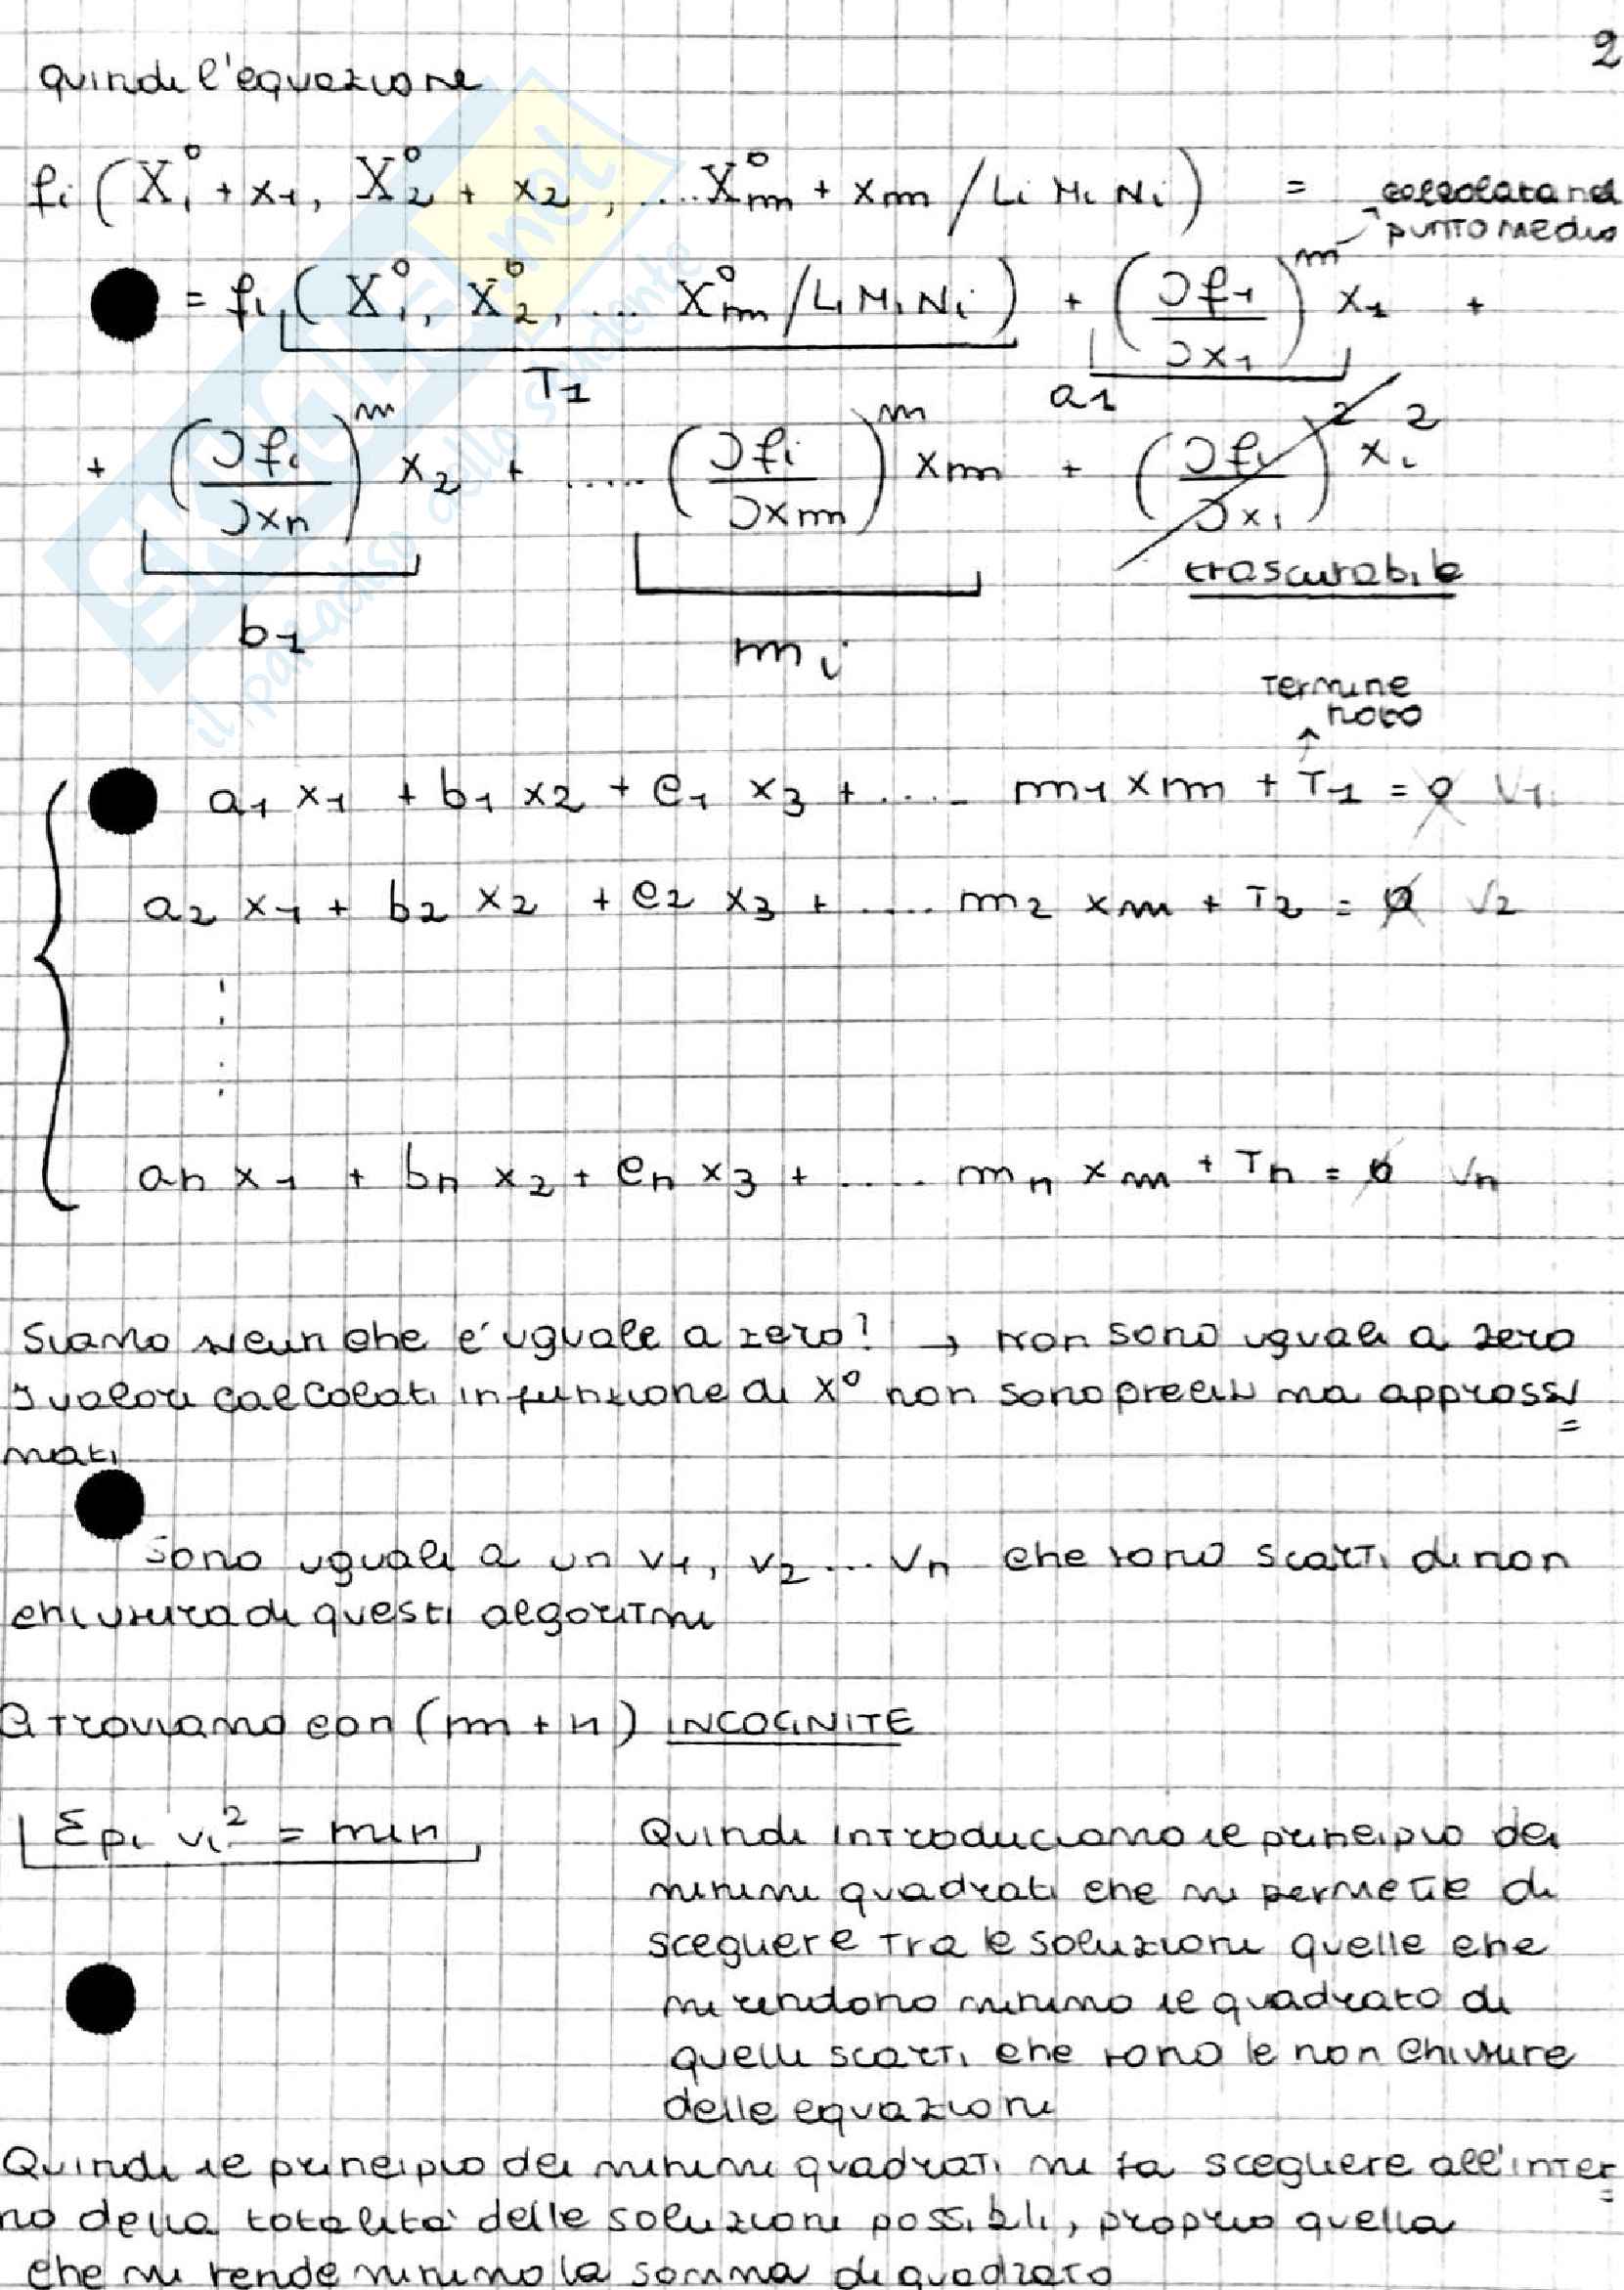 2
quindi l'equazione
fi (X₁° + x₁, X₂° + x₂, .... Xm° + xm / Li Mi Ni) = calcolata nel
punto medio
= fi (X₁°, X₂°, ... Xm° / Li Mi Ni) + (∂f₁/∂x₁)ᵐ x₁ +
T₁ a₁
+ (∂fi/∂xn)ᵐ x₂ + ..... (∂fi/∂xm)ᵐ xm + (∂fi/∂xi)² xi²
trascurabile
b₁ mi
Termine
noto
a₁ x₁ + b₁ x₂ + c₁ x₃ + .... m₁ xm + T₁ = 0 V₁
a₂ x₁ + b₂ x₂ + c₂ x₃ + .... m₂ xm + T₂ = 0 V₂
an x₁ + bn x₂ + cn x₃ + .... mn xm + Tn = 0 Vn
Siamo sicuri che è uguale a zero? → Non sono uguali a zero
I valori calcolati in funzione di X° non sono precisi ma approssi
=
mati
Sono uguali a un v₁, v₂ ... vn che sono scarti di non
chiusura di questi algoritmi
Ci troviamo con (m + n) INCOGNITE
Σ pi vi² = min
Quindi introduciamo il principio dei
minimi quadrati che mi permette di
scegliere tra le soluzioni quelle che
mi rendono minimo il quadrato di
quelli scarti che sono le non chiusure
delle equazioni
Quindi il principio dei minimi quadrati mi fa scegliere all'inter
=
no della totalità delle soluzioni possibili, proprio quella
che mi rende minimo la somma di quadrato
SKUOLA.net
il paradiso dello studente